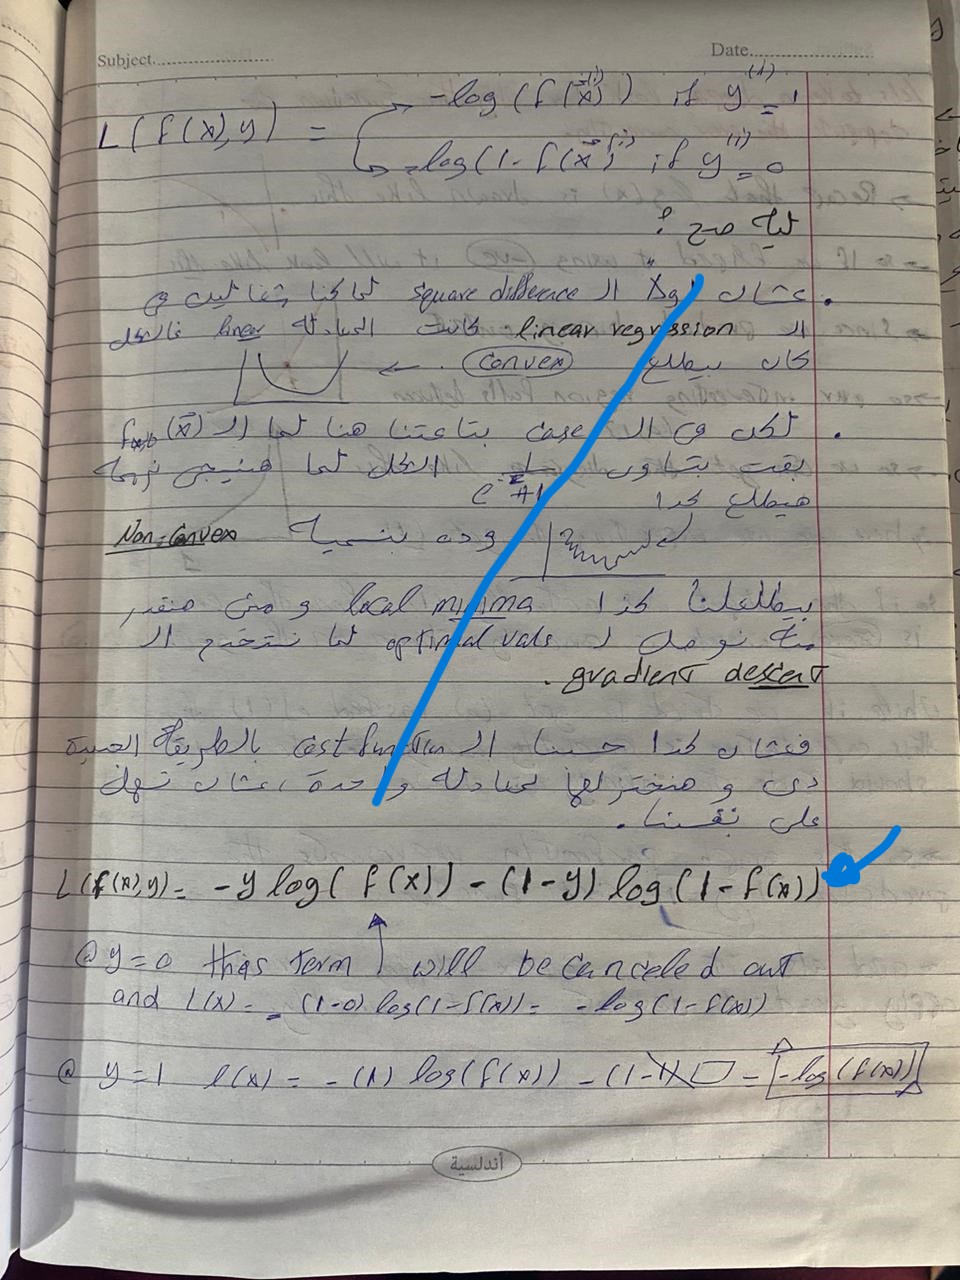 Subject.
Date
L(f(x),y) = -log(f(x⃗⁽ⁱ⁾)) if y⁽ⁱ⁾ = 1
-log(1-f(x⃗⁽ⁱ⁾) if y⁽ⁱ⁾ = 0
ليه صح ؟
. عشان اولا ال square difference لما كنا شغالين في
ال linear regression كانت المعادلة linear فالشكل
كان بيطلع convex ←
. لكن في ال case بتاعتنا هنا لما ال (x⃗)
بقت بتساوي الشكل لما هنيجي نرسمه
هيطلع كدا
وده بنسمية Non-Convex
بيطلعلنا كذا local minima و مش هنقدر
نوصل ل optimal vals لما نستخدم ال
gradient descent .
فعشان كدا حسبنا ال cost function بالطريقة الجديدة
دي و هنختزلها لمعادلة واحدة ، عشان نسهل
على نفسنا .
L(f(x),y) = -y log( f(x)) - (1-y) log (1-f(x))
@ y=0 this term will be canceled out
and L(x) = - (1-0) log(1-f(x)) = -log(1-f(x))
@ y=1 l(x) = -(1) log(f(x)) - (1-1) □ = -log(f(x))
أندلسية